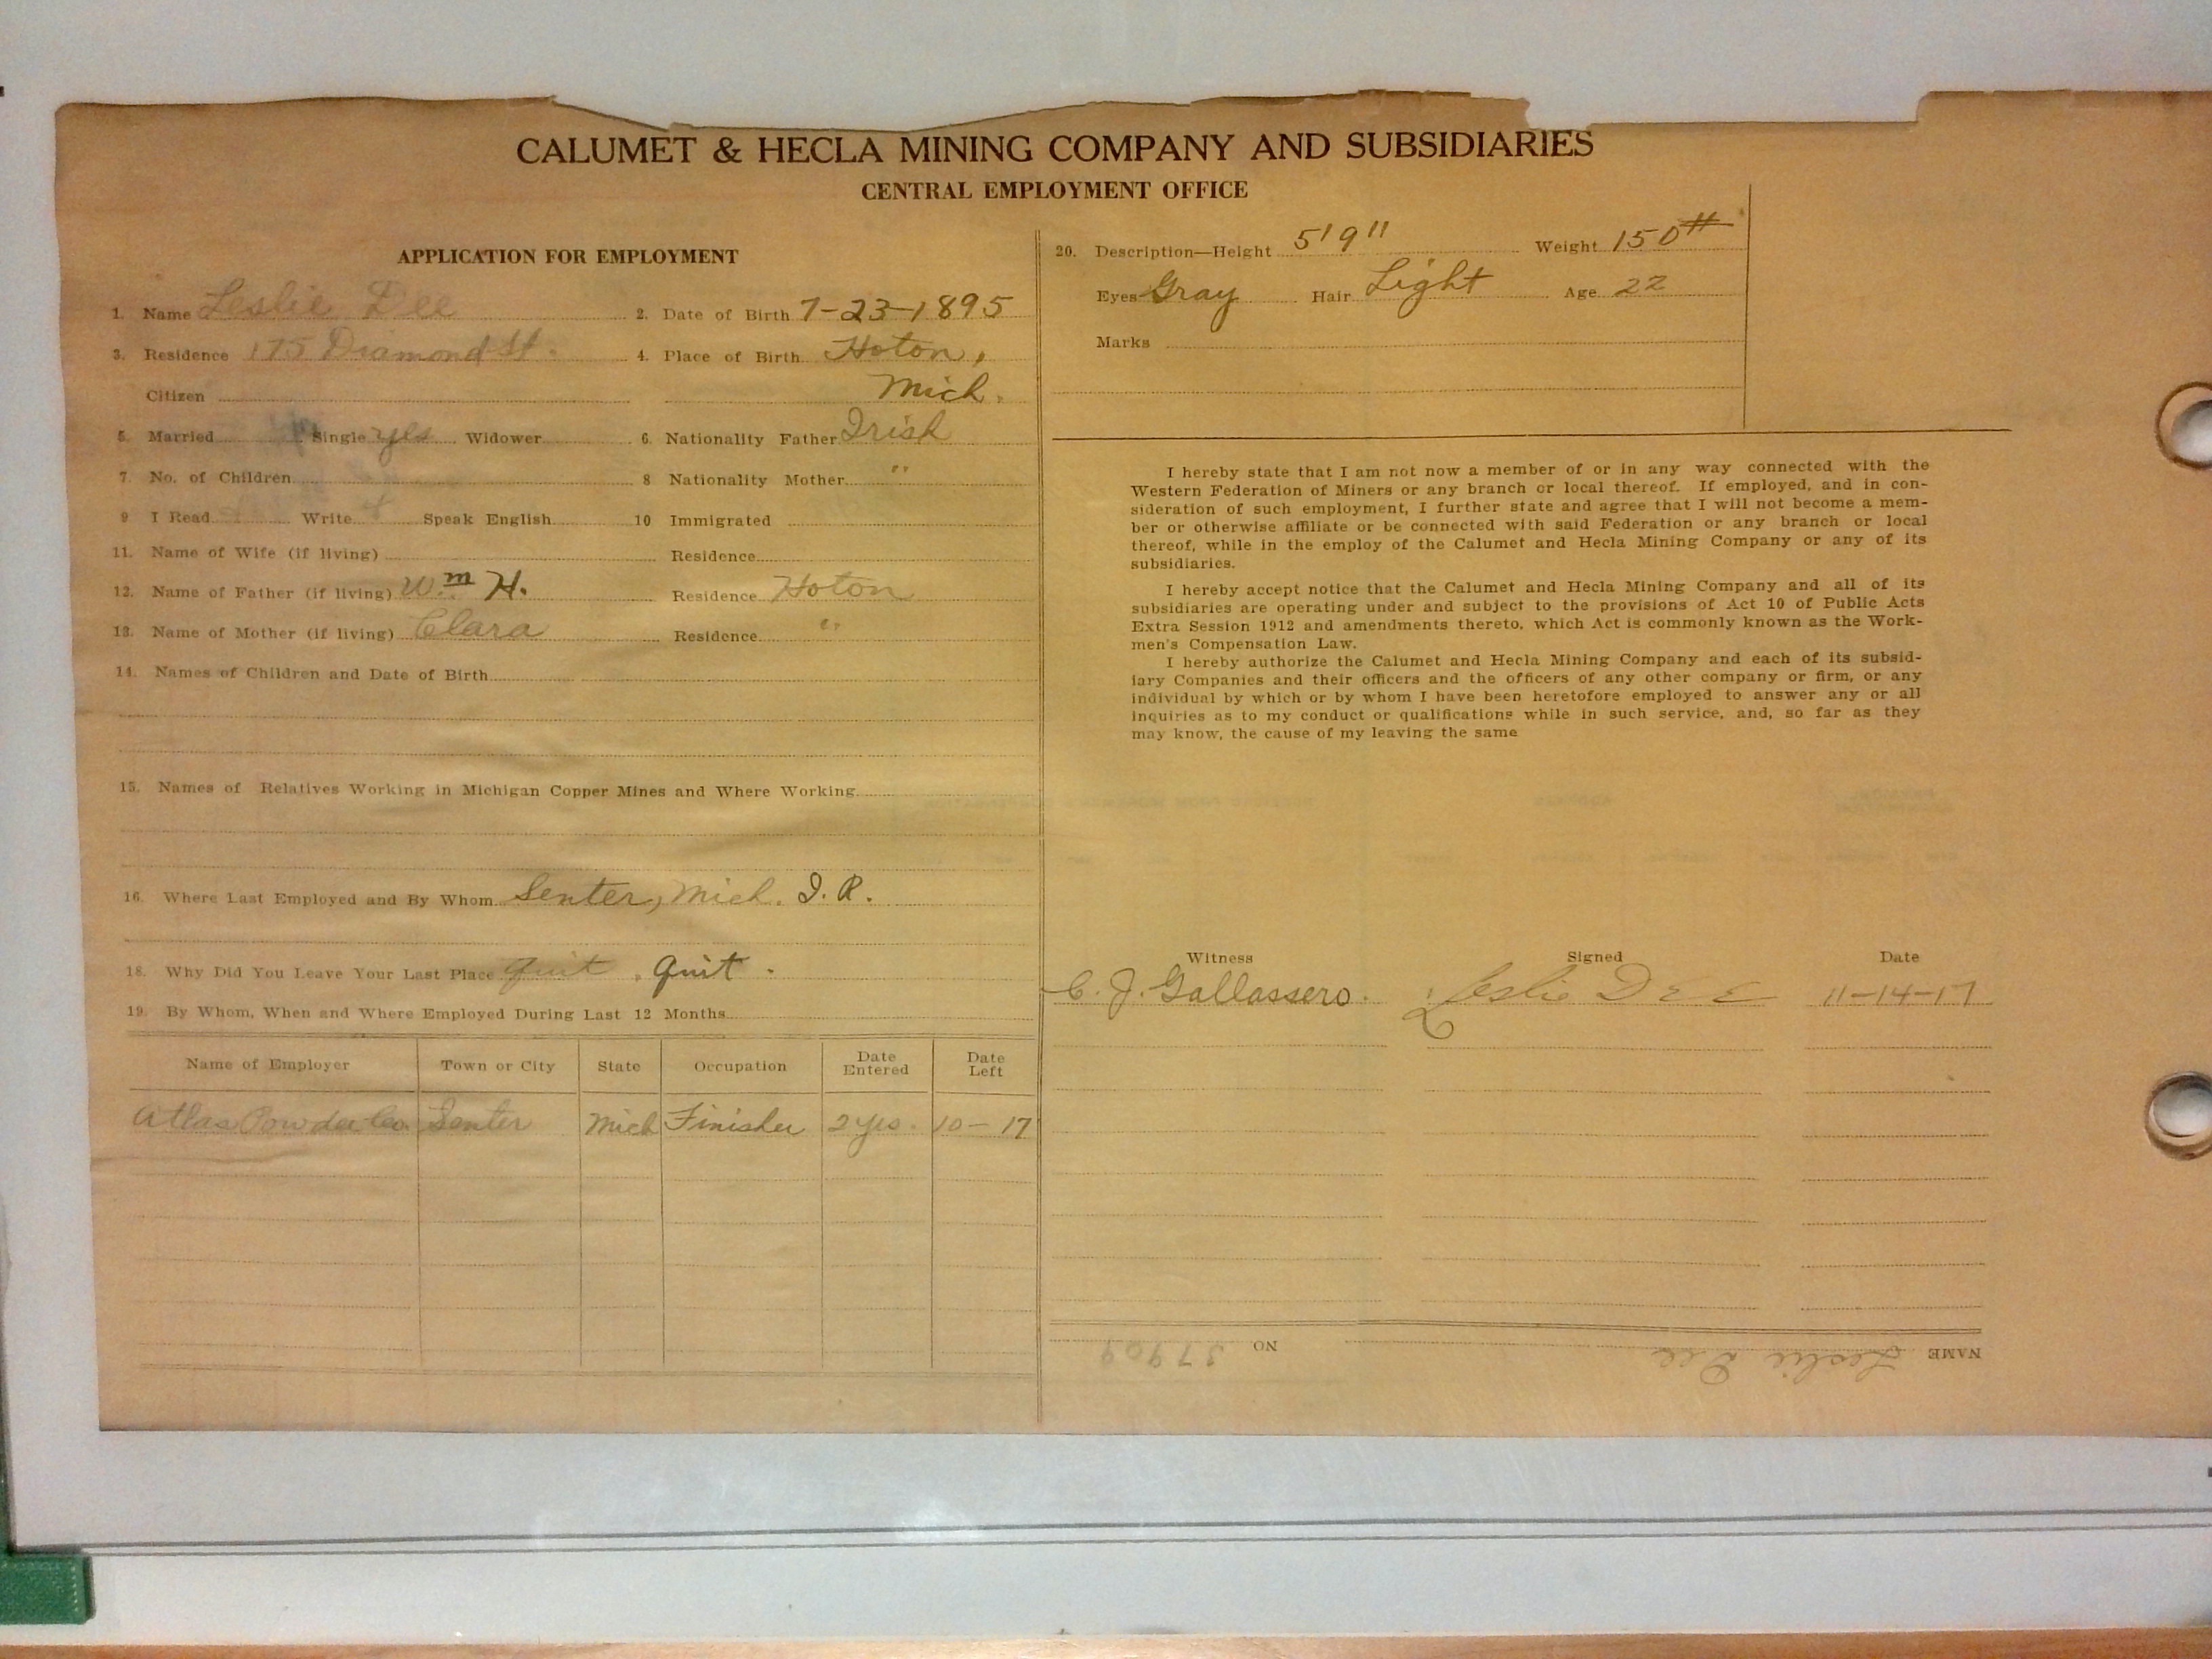 CALUMET & HECLA MINING COMPANY AND SUBSIDIARIES
CENTRAL EMPLOYMENT OFFICE
APPLICATION FOR EMPLOYMENT
1. Name Leslie Dee 2. Date of Birth 7-23-1895
3. Residence 175 Diamond St. 4. Place of Birth Hoton,
Citizen Mich.
5. Married Single yes Widower 6. Nationality Father Irish
7. No. of Children 8 Nationality Mother "
9 I Read Write Speak English 10 Immigrated
11. Name of Wife (if living) Residence
12. Name of Father (if living) Wm H. Residence Hoton
13. Name of Mother (if living) Clara Residence "
14. Names of Children and Date of Birth
15. Names of Relatives Working in Michigan Copper Mines and Where Working
16. Where Last Employed and By Whom Senter, Mich. I. R.
18. Why Did You Leave Your Last Place quit. quit.
19. By Whom, When and Where Employed During Last 12 Months
Name of Employer Town or City State Occupation Date Entered Date Left
Atlas Powder Co. Senter Mich Finisher 2 yrs. 10-17
20. Description—Height 5'9" Weight 150#
Eyes Gray Hair Light Age 22
Marks
I hereby state that I am not now a member of or in any way connected with the
Western Federation of Miners or any branch or local thereof. If employed, and in con-
sideration of such employment, I further state and agree that I will not become a mem-
ber or otherwise affiliate or be connected with said Federation or any branch or local
thereof, while in the employ of the Calumet and Hecla Mining Company or any of its
subsidiaries.
I hereby accept notice that the Calumet and Hecla Mining Company and all of its
subsidiaries are operating under and subject to the provisions of Act 10 of Public Acts
Extra Session 1912 and amendments thereto, which Act is commonly known as the Work-
men's Compensation Law.
I hereby authorize the Calumet and Hecla Mining Company and each of its subsid-
iary Companies and their officers and the officers of any other company or firm, or any
individual by which or by whom I have been heretofore employed to answer any or all
inquiries as to my conduct or qualifications while in such service, and, so far as they
may know, the cause of my leaving the same
Witness Signed Date
C. J. Gallassero. Leslie Dee 11-14-17
NAME Leslie Dee NO 37909